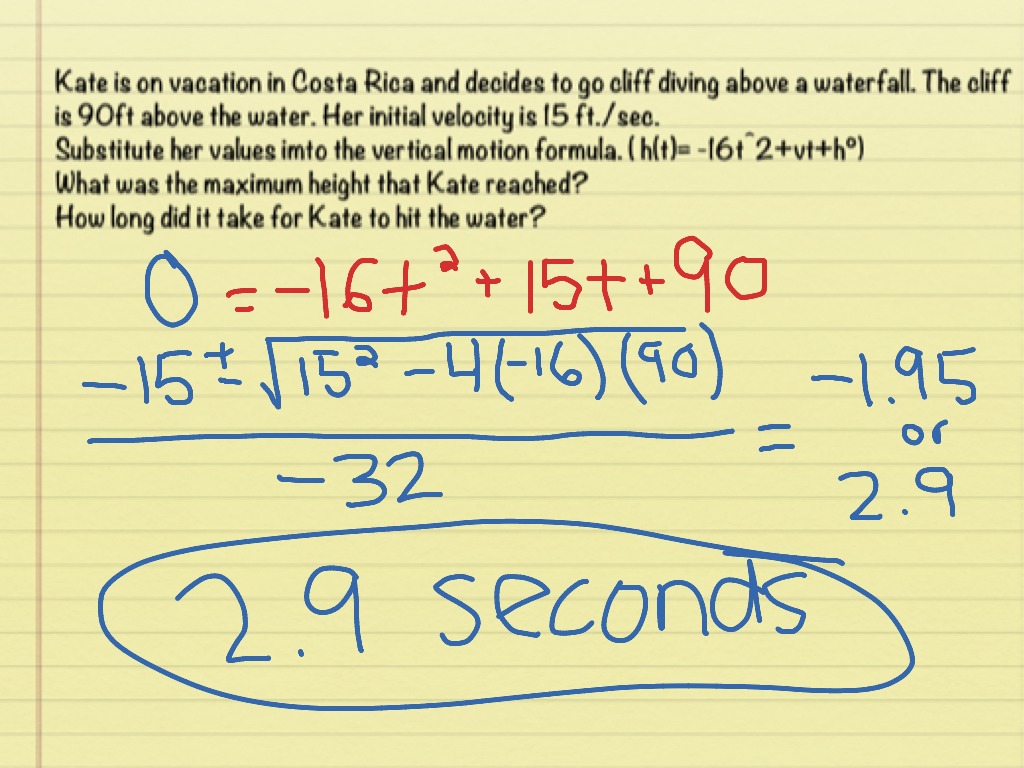 Kate is on vacation in Costa Rica and decides to go cliff diving above a waterfall. The cliff
is 90ft above the water. Her initial velocity is 15 ft./sec.
Substitute her values imto the vertical motion formula. ( h(t)= -16t^2+vt+h°)
What was the maximum height that Kate reached?
How long did it take for Kate to hit the water?
0 = -16t² + 15t + 90
-15 ± √15² - 4(-16)(90)
-32
= -1.95
or
2.9
2.9 seconds